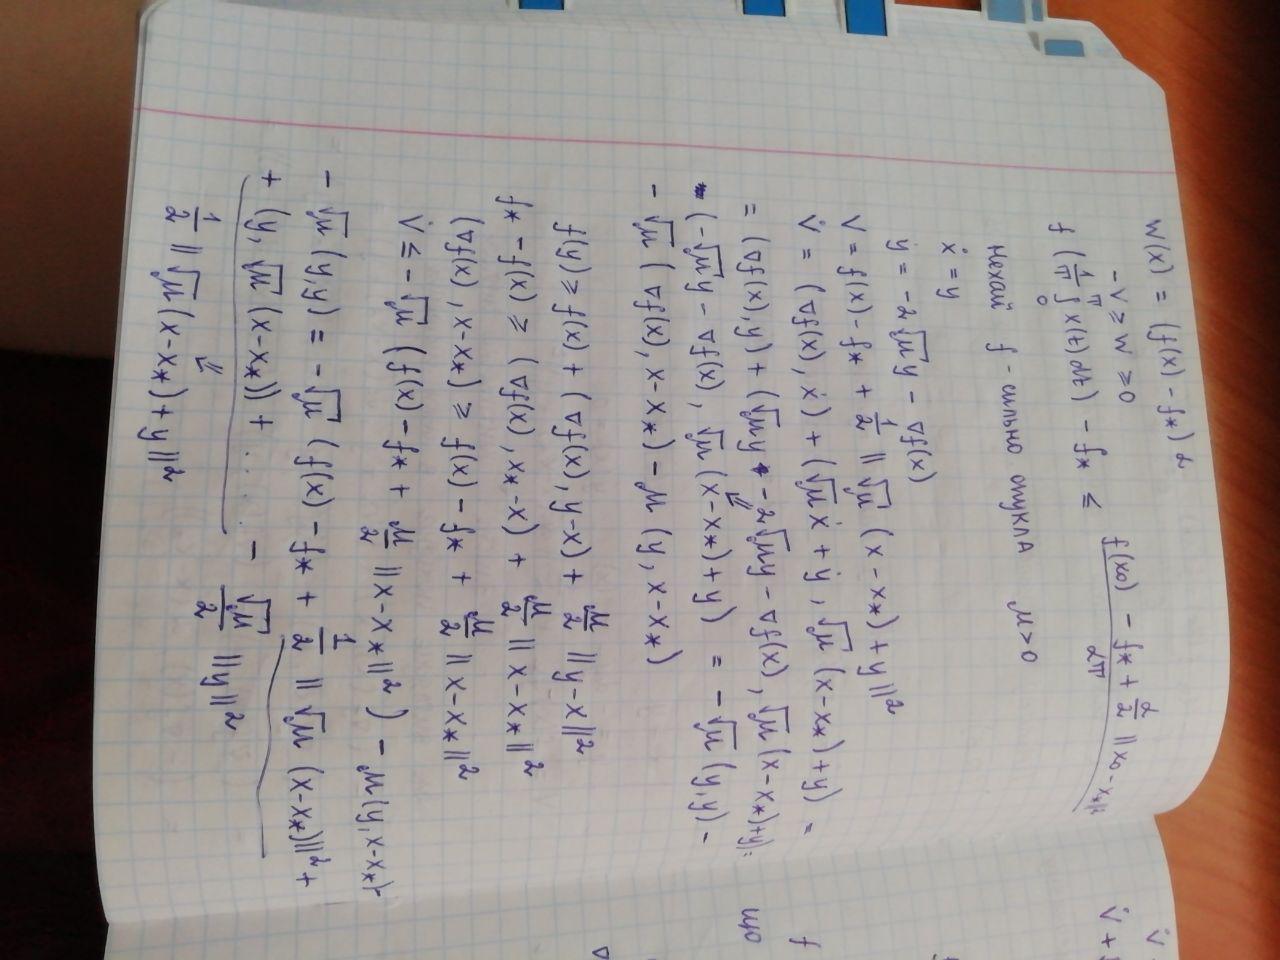 W(x) = (f(x) - f*) α
-V̇ ≥ W ≥ 0
f (1/T ∫₀ᵀ x(t) dt) - f* ≤ (f(x₀) - f* + α/2 ||x₀ - x*||²)/(αT)
Нехай f - сильно опукла μ > 0
ẋ = y
ẏ = -2√μ y - ∇f(x)
V = f(x) - f* + 1/2 || √μ (x - x*) + y ||²
V̇ = (∇f(x), ẋ) + (√μ ẋ + ẏ, √μ (x - x*) + y) =
= (∇f(x), y) + (√μ y - 2√μ y - ∇f(x), √μ (x - x*) + y) =
(-√μ y - ∇f(x), √μ (x - x*) + y) = -√μ (y, y) -
- √μ (∇f(x), x - x*) - μ (y, x - x*)
f(y) ≥ f(x) + (∇f(x), y - x) + μ/2 ||y - x||²
f* - f(x) ≥ (∇f(x), x* - x) + μ/2 || x - x* ||²
(∇f(x), x - x*) ≥ f(x) - f* + μ/2 || x - x* ||²
V̇ ≤ -√μ (f(x) - f* + μ/2 || x - x* ||²) - μ(y, x - x*) -
- √μ (y, y) = -√μ (f(x) - f* + 1/2 || √μ (x - x*)||² +
+ (y, √μ (x - x*)) + ..... - √μ/2 ||y||²
1/2 || √μ (x - x*) + y ||²
V̇
V̇ +
f
що
∇